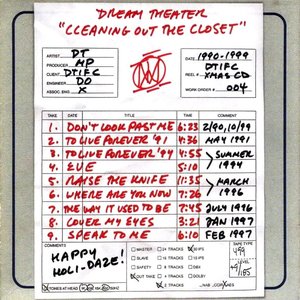 DREAM THEATER
"CLEANING OUT THE CLOSET"
ARTIST DT
PRODUCER MP
CLIENT DTIFC
ENGINEER DO
ASSOC. ENG X
DATE 1990-1999
DTIFC
REEL # XMAS CD
WORK ORDER # 004
TAKE DATE TITLE TIME COMMENT
1. DON'T LOOK PAST ME 6:23 2/90, 10/99
2. TO LIVE FOREVER '91 4:36 MAY 1991
3. TO LIVE FOREVER '94 4:55 SUMMER
4. EVE 5:10 1994
5. RAISE THE KNIFE 11:35 MARCH
6. WHERE ARE YOU NOW 7:26 1996
7. THE WAY IT USED TO BE 7:45 JULY 1996
8. COVER MY EYES 3:21 JAN 1997
9. SPEAK TO ME 6:10 FEB 1997
COMMENTS
HAPPY
HOLI-DAZE!
MASTER 24 TRACKS 30 IPS
SLAVE 16 TRACKS 15 IPS
SAFETY 8 TRACKS DBX
OUT TAKE 2 TRACKS DOLBY
TAPE TYPE
499
TONES AT HEAD